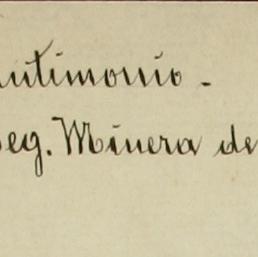 antimonio.
eg. Minera de